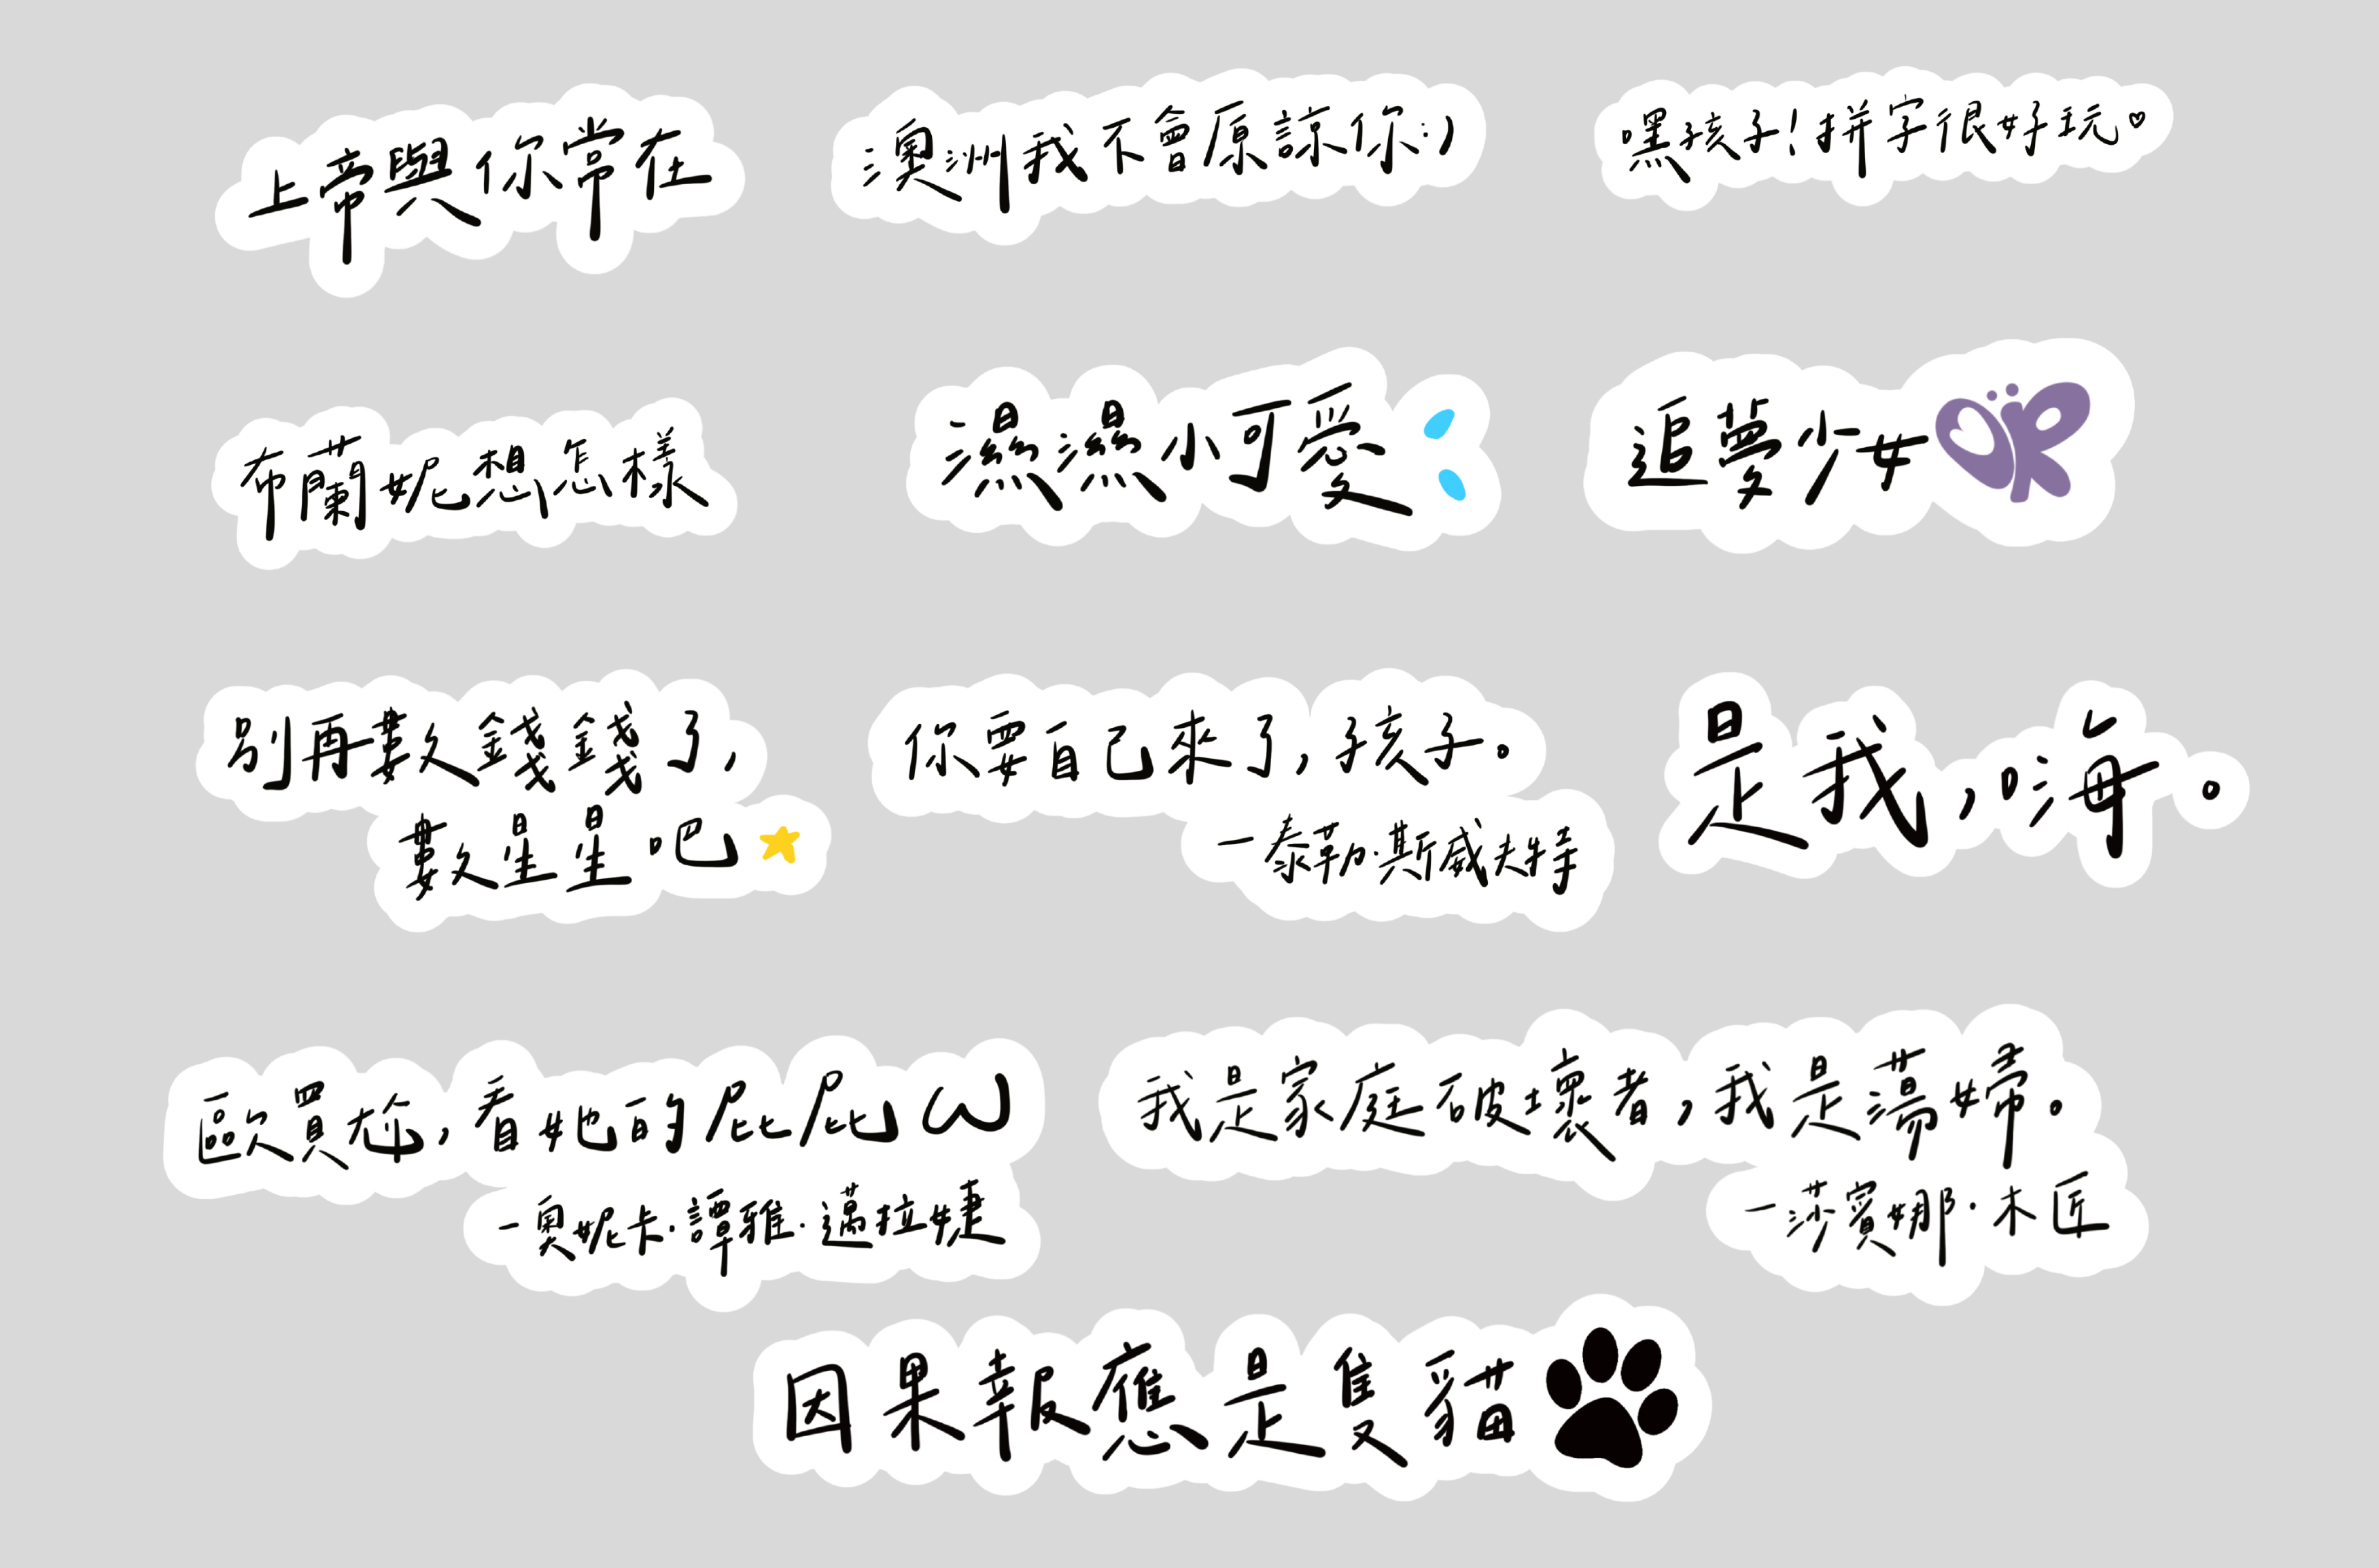 上帝與你常在
澳洲我不會原諒你:)
嘿孩子!拼字很好玩♡
布蘭妮想怎樣
濕濕小可愛
追夢少女
別再數錢錢了,
數星星吧
你要自己來了,孩子。
—泰勒·斯威夫特
是我,嗨。
歐買尬,看她的屁屁ω
—奧妮卡·譚雅·邁拉婕
我是家庭破壞者,我是蕩婦。
—莎賓娜·木匠
因果報應是隻貓